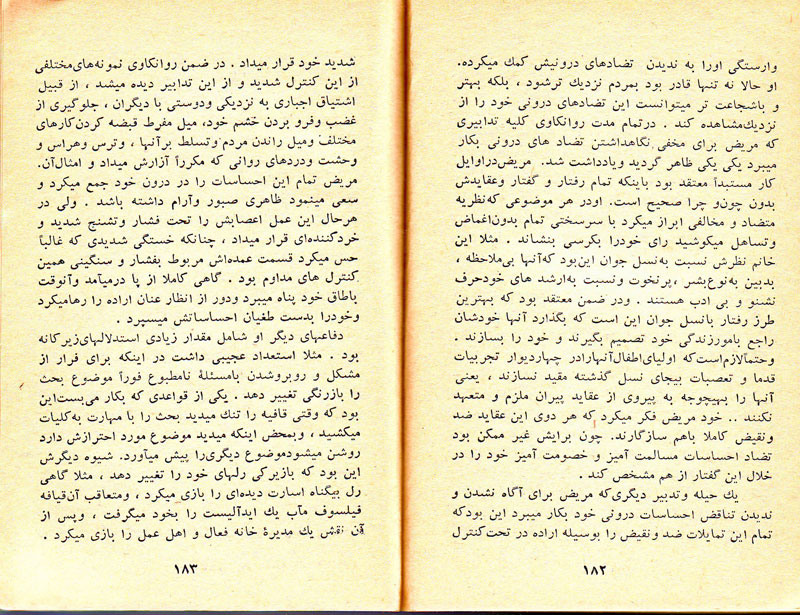 وارستگی اورا به ندیدن تضادهای درونیش کمك میکرده.
او حالا نه تنها قادر بود بمردم نزدیك ترشود ، بلکه بهتر
و باشجاعت تر میتوانست این تضادهای درونی خود را از
نزدیك مشاهده کند . درتمام مدت روانکاوی کلیه تدابیری
که مریض برای مخفی نگاهداشتن تضاد های درونی بکار
میبرد یکی یکی ظاهر گردید ویادداشت شد. مریض دراوایل
کار مستبداً معتقد بود باینکه تمام رفتار و گفتار وعقایدش
بدون چون و چرا صحیح است. اودر هر موضوعی که نظریه
متضاد و مخالفی ابراز میکرد با سرسختی تمام بدون اغماض
وتساهل میکوشید رای خودرا بکرسی بنشاند . مثلا این
خانم نظرش نسبت به نسل جوان این بود که آنها بی ملاحظه ،
بدبین به نوع بشر ،پرنخوت ونسبت به ارشد های خودحرف
نشنو و بی ادب هستند . ودر ضمن معتقد بود که بهترین
طرز رفتار بانسل جوان این است که بگذارد آنها خودشان
راجع بامورزندگی خود تصمیم بگیرند و خود را بسازند .
وحتماً لازم است که اولیای اطفال آنهارادر چهاردیوار تجربیات
قدما و تعصبات بیجای نسل گذشته مقید نسازند ، یعنی
آنها را بهیچوجه به پیروی از عقاید پیران ملزم و متعهد
نکنند .. خود مریض فکر میکرد که هر دوی این عقاید ضد
ونقیض کاملا باهم سازگارند. چون برایش غیر ممکن بود
تضاد احساسات مسالمت آمیز و خصومت آمیز خود را در
خلال این گفتار از هم مشخص کند .
یك حیله وتدبیر دیگری که مریض برای آگاه نشدن و
ندیدن تناقض احساسات درونی خود بکار میبرد این بودکه
تمام این تمایلات ضد ونقیض را بوسیله اراده در تحت کنترل
۱۸۲
شدید خود قرار میداد . در ضمن روانکاوی نمونه های مختلفی
از این کنترل شدید و از این تدابیر دیده میشد ، از قبیل
اشتیاق اجباری به نزدیکی ودوستی با دیگران ، جلوگیری از
غضب وفرو بردن خشم خود، میل مفرط قبضه کردن کارهای
مختلف ومیل راندن مردم وتسلط برآنها ، وترس وهراس و
وحشت ودردهای روانی که مکرراً آزارش میداد و امثال آن.
مریض تمام این احساسات را در درون خود جمع میکرد و
سعی مینمود ظاهری صبور وآرام داشته باشد . ولی در
هرحال این عمل اعصابش را تحت فشار وتشنج شدید و
خردکننده ای قرار میداد ، چنانکه خستگی شدیدی که غالباً
حس میکرد قسمت عمده اش مربوط بفشار و سنگینی همین
کنترل های مداوم بود . گاهی کاملا از پا درمیآمد وآنوقت
باطاق خود پناه میبرد ودور از انظار عنان اراده را رهامیکرد
وخودرا بدست طغیان احساساتش میسپرد .
دفاعهای دیگر او شامل مقدار زیادی استدلالهای زیرکانه
بود . مثلا استعداد عجیبی داشت در اینکه برای فرار از
مشکل و روبروشدن بامسئلهٔ نامطبوع فوراً موضوع بحث
را بازرنگی تغییر دهد . یکی از قواعدی که بکار می بست این
بود که وقتی قافیه را تنك میدید بحث را با مهارت به کلیات
میکشید ، وبمحض اینکه میدید موضوع مورد احترازش دارد
روشن میشودموضوع دیگری را پیش میآورد. شیوه دیگرش
این بود که بازیرکی رلهای خود را تغییر دهد ، مثلا گاهی
رل بیگناه اسارت دیده ای را بازی میکرد ، ومتعاقب آن قیافه
فیلسوف مآب یك ایدآلیست را بخود میگرفت ، وپس از
آن نقش یك مدیرهٔ خانه فعال و اهل عمل را بازی میکرد .
۱۸۳